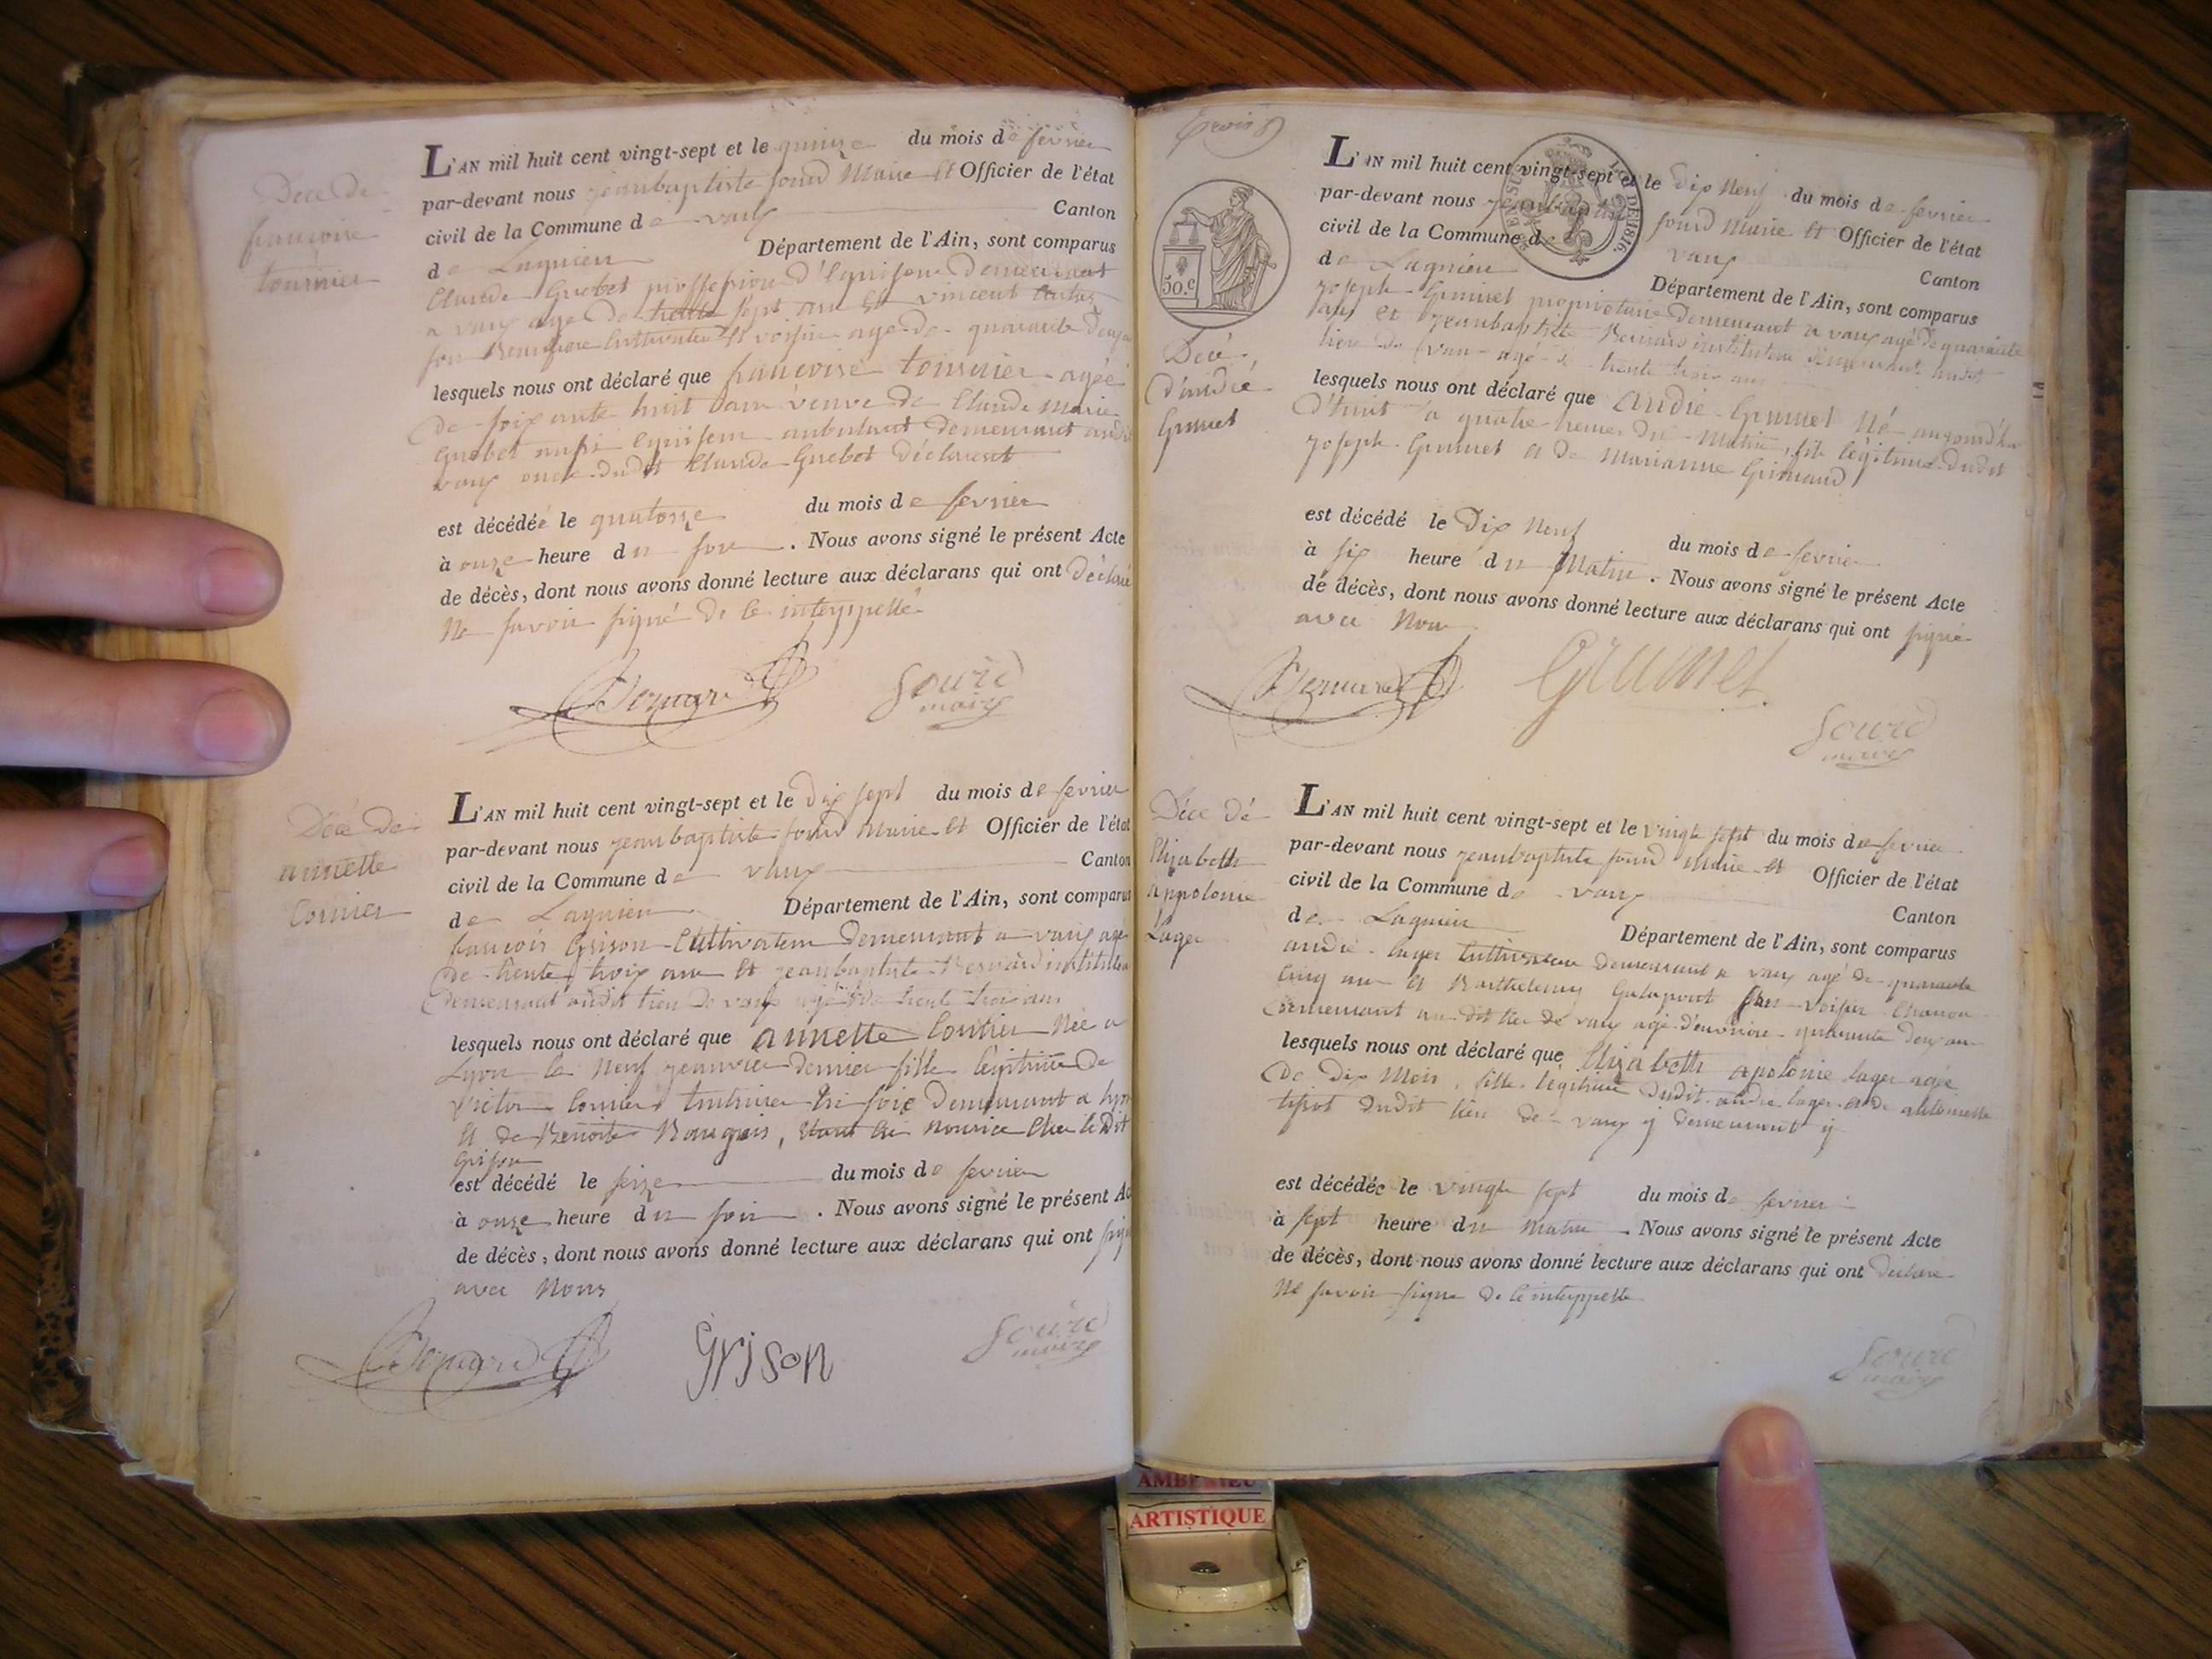 Decé de
francoise
tournier
L'AN mil huit cent vingt-sept et le quinze du mois de fevrier
par-devant nous jeanbaptiste sourd Maire et Officier de l'état
civil de la Commune de vaux Canton
de Lagnieu Département de l'Ain, sont comparus
Claude Guebet demeurant
a vaux agé de sept ans et vincent
cultivateur et voisin agé de quarante deux
lesquels nous ont déclaré que francoise tournier agée
de soixante huit ans veuve de Claude Marie
Guebet demeurant audit
vaux dudit Claude Guebet déclarent
est décédée le quatorze du mois de fevrier
à onze heure du soir. Nous avons signé le présent Acte
de décès, dont nous avons donné lecture aux déclarans qui ont déclaré
Ne savoir signé de ce interpellé
Bernard Sourd
maire
Decé de
annette
Cornier
L'AN mil huit cent vingt-sept et le dix sept du mois de fevrier
par-devant nous jeanbaptiste sourd Maire et Officier de l'état
civil de la Commune de vaux Canton
de Lagnieu Département de l'Ain, sont comparus
francois Grison Cultivateur demeurant a vaux agé
de trente trois ans et jeanbaptiste Bernard instituteur
demeurant audit lieu de vaux agé de trente trois ans
lesquels nous ont déclaré que annette Née a
Lyon le Neuf janvier dernier fille légitime de
victor demeurant a Lyon
et de Benoite Bourgeois, en Nourice chez le dit
Grison
est décédé le seize du mois de fevrier
à onze heure du soir. Nous avons signé le présent Ac
de décès, dont nous avons donné lecture aux déclarans qui ont signé
avec Nous
Bernard Grison Sourd
maire
50.c
Decé
d'andré
Grumet
L'AN mil huit cent vingt-sept et le dix Neuf du mois de fevrier
par-devant nous jeanbaptiste sourd Maire et Officier de l'état
civil de la Commune de vaux Canton
de Lagnieu Département de l'Ain, sont comparus
joseph Grumet propriétaire demeurant a vaux agé de quarante
ans et jeanbaptiste Bernard instituteur demeurant audit
lieu de vaux agé de trente trois ans
lesquels nous ont déclaré que andré Grumet Né aujourd'hui
a quatre heures du Matin, fils légitime dudit
joseph Grumet et de Marianne Grimaud
est décédé le dix Neuf du mois de fevrier
à six heure du Matin. Nous avons signé le présent Acte
de décès, dont nous avons donné lecture aux déclarans qui ont signé
avec Nous
Bernard Grumet
Sourd
maire
Decé dé
Elizabeth
appolonie
Lager
L'AN mil huit cent vingt-sept et le vingt sept du mois de fevrier
par-devant nous jeanbaptiste sourd Maire et Officier de l'état
civil de la Commune de vaux Canton
de Lagnieu Département de l'Ain, sont comparus
andré lager cultivateur demeurant a vaux agé de quarante
cinq ans et Barthelemy son voisin
demeurant au dit lieu de vaux agé d'environ quarante deux ans
lesquels nous ont déclaré que Elizabeth apolonie lager agée
de dix Mois, fille légitime dudit andré lager et de antoinette
tipot dudit lieu de vaux y demeurant
est décédée le vingt sept du mois de fevrier
à sept heure du Matin. Nous avons signé le présent Acte
de décès, dont nous avons donné lecture aux déclarans qui ont declare
Ne savoir signe de ce interppelle
Sourd
maire
AMBERIEU
ARTISTIQUE